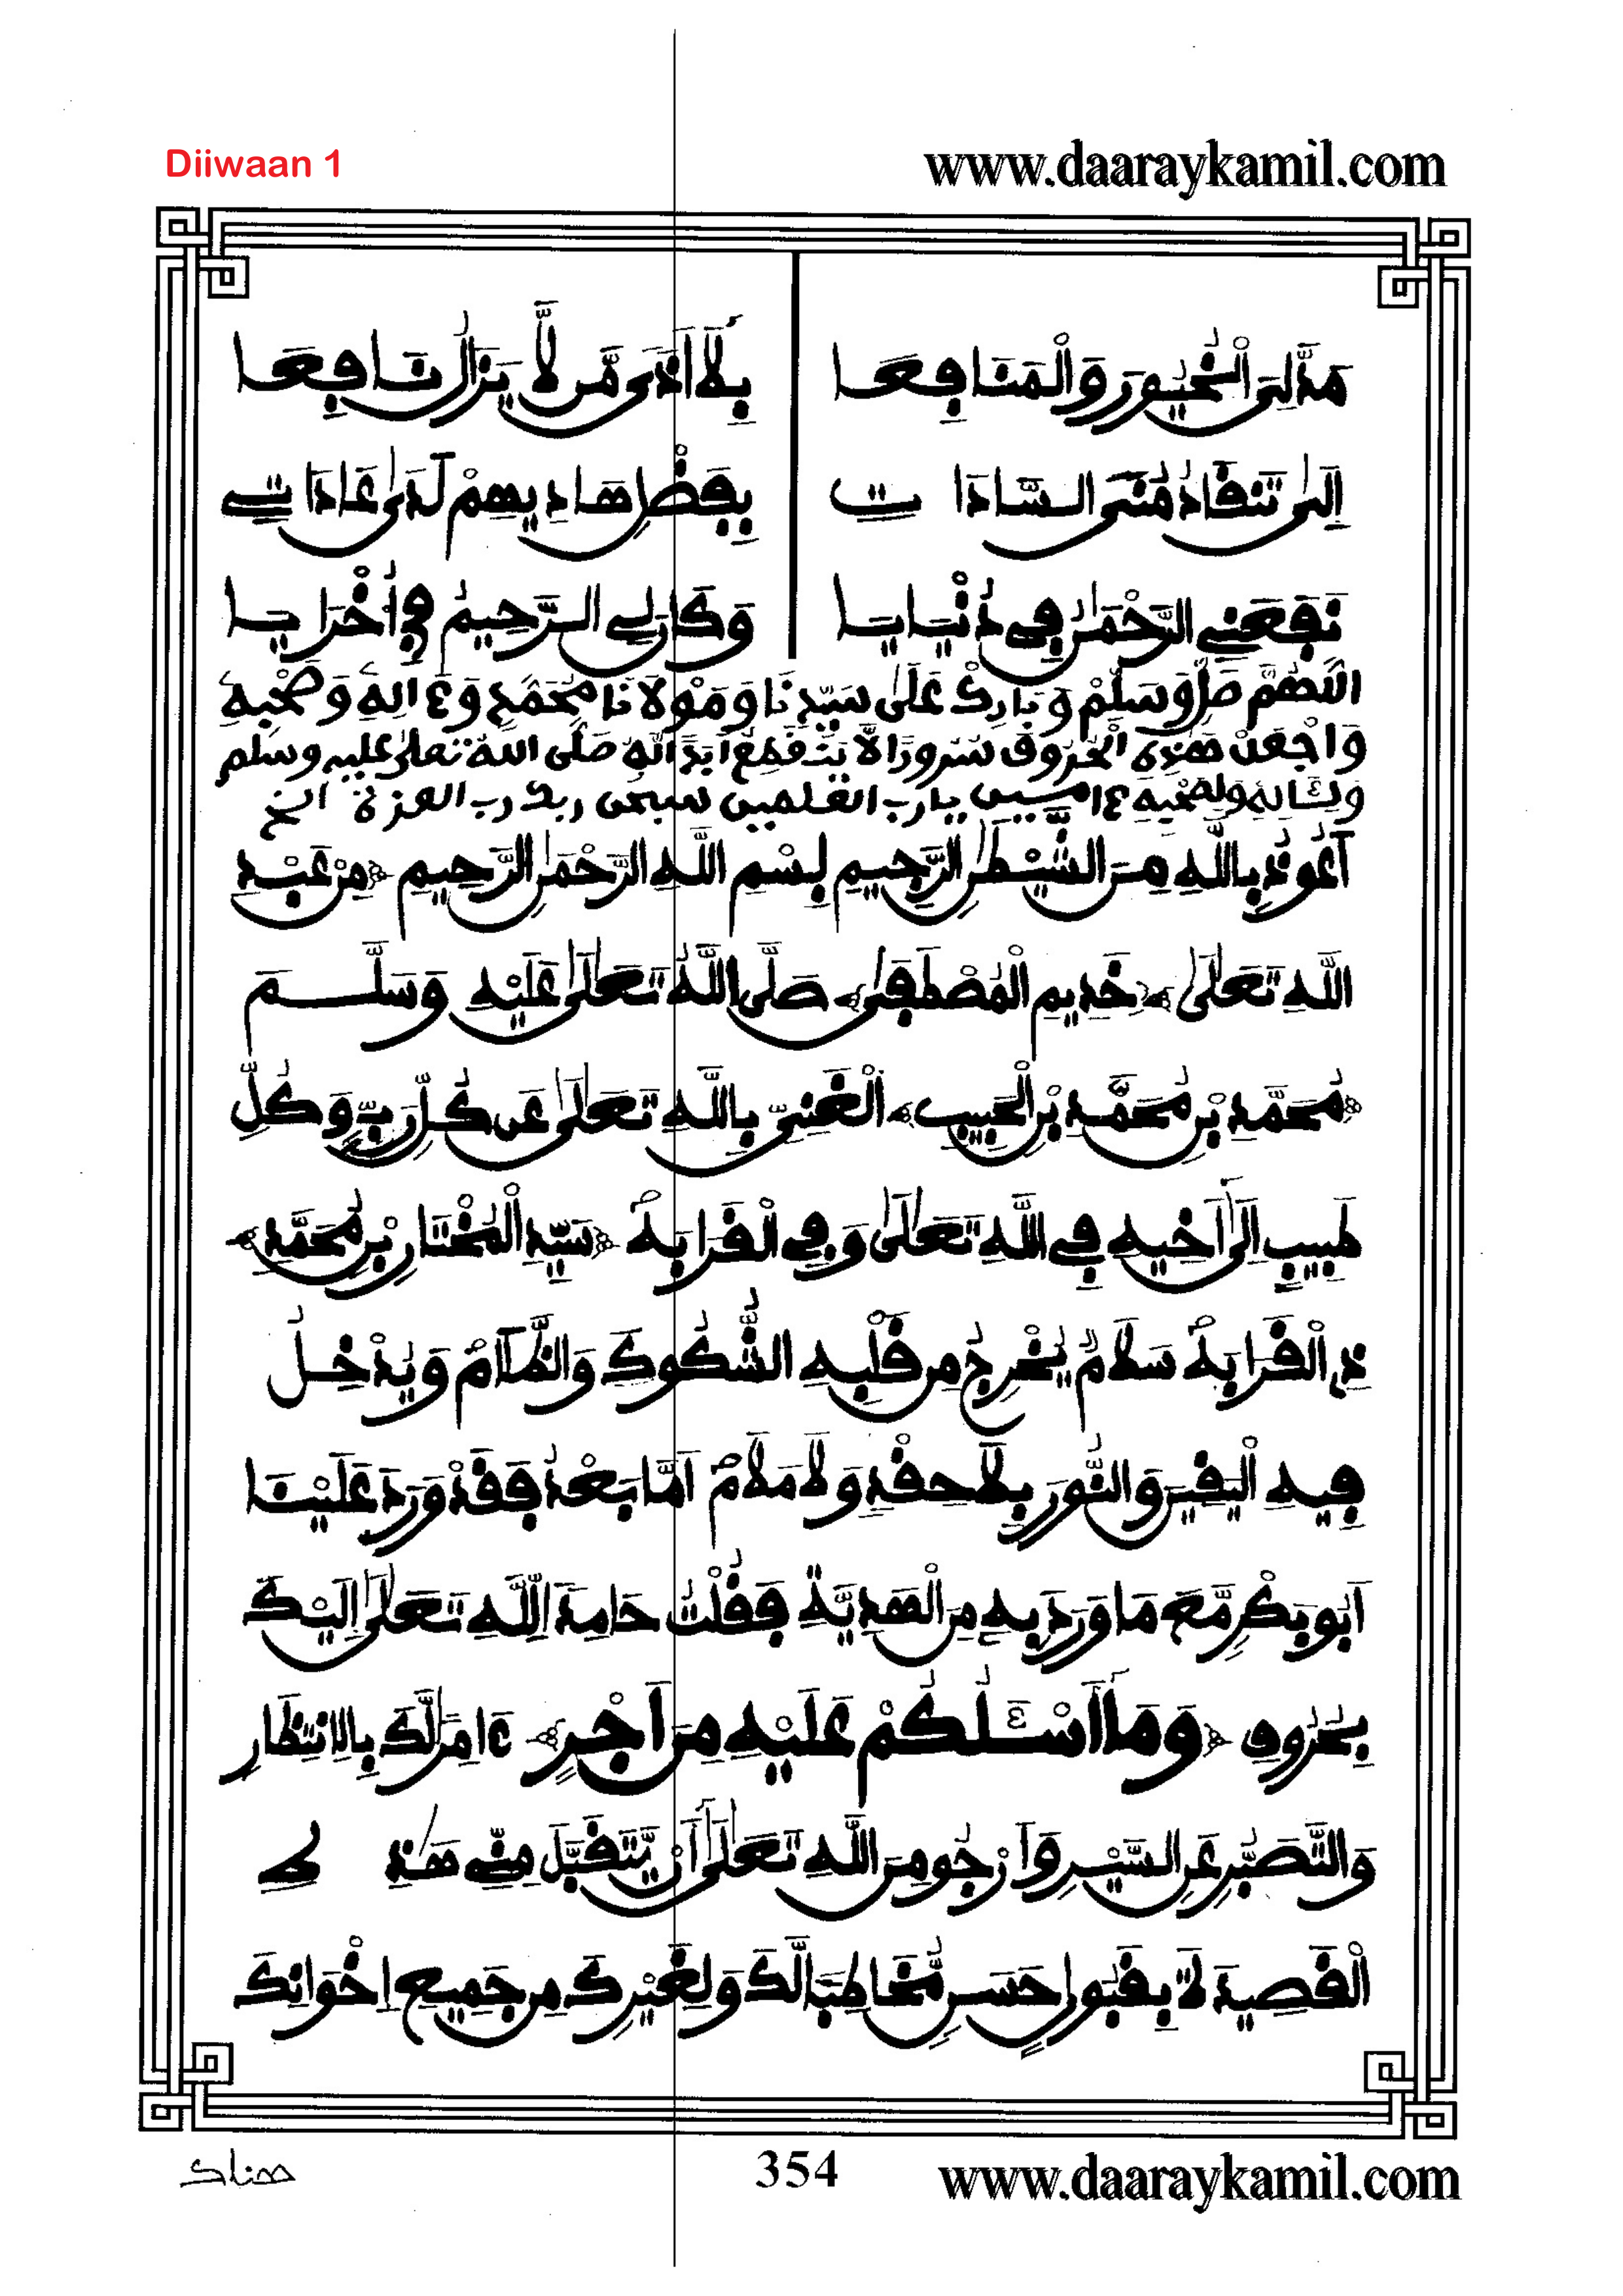 Diiwaan 1
www.daaraykamil.com
مَدَّ لِىَ الْخُيُورَ وَالْمَنَافِعَا بِلَا أَذًى مَن لَّا يَزَالُ نَافِعَا
إِلَى تَنْقَادُ مُنَى السَّادَاتِ بِقَضِّ هَادِيهِمْ لَدَى عَادَاتِى
نَفَعَنِى الرَّحْمَنُ فِى دُنْيَايَا وَكَانَ لِى الرَّحِيمُ فِى أُخْرَايَا
اللَّهُمَّ صَلِّ وَسَلِّمْ وَبَارِكْ عَلَى سَيِّدِنَا وَمَوْلَانَا مُحَمَّدٍ وَعَ الِهِ وَصَحْبِهِ
وَاجْعَلْ هَذِهِ الْحُرُوفَ سُرُورًا لَّا يَنْقَطِعُ أَبَدًا لَهُ صَلَّى اللَّهُ تعلى عليه وسلم
ولِصَحْبِهِ يا رب العلمين سبحن ربك رب العزة الخ
أَعُوذُ بِاللَّهِ مِنَ الشَّيْطَنِ الرَّجِيمِ بِسْمِ اللَّهِ الرَّحْمَنِ الرَّحِيمِ مِنْ عَبْدِ
اللَّهِ تَعَلَى خَدِيمِ الْمُصْطَفَى صَلَّى اللَّهُ تَعَلَى عَلَيْهِ وَسَلَّمَ
مُحَمَّدِ بْنِ مُحَمَّدِ بْنِ الْحَبِيبِ الْغَنِىِّ بِاللَّهِ تَعَلَى عَن كُلِّ رَبٍّ وَكُلِّ
طَبِيبٍ إِلَى أَخِيهِ فِى اللَّهِ تَعَلَى وَفِى الْقَرَابَةِ سَيِّدِ الْمُخْتَارِ بْنِ مُحَمَّدِ
ذِى الْقَرَابَةِ سَلَامٌ يُخْرِجُ مِن قَلْبِهِ الشُّكُوكَ وَالظَّلَامَ وَيُدْخِلُ
فِيهِ الْيَقِينَ وَالنُّورَ بِلَا حِقْدٍ وَلَا مَلَامٍ أَمَّا بَعْدُ فَقَدْ وَرَدَ عَلَيْنَا
أَبُو بَكْرٍ مَّعَ مَا وَرَدَ بِهِ مِنَ الْهَدِيَّةِ فَقُلْتُ حَامِدًا لِّلَّهِ تَعَلَى إِلَيْكَ
بِحُرُوفِ وَمَا أَسْـَٔلُكُمْ عَلَيْهِ مِنْ أَجْرٍ ءَامِرًا لَّكَ بِالِانْتِظَارِ
وَالتَّصَبُّرِ عَنِ السَّيْرِ وَأَرْجُو مِنَ اللَّهِ تَعَلَى أَن يَّتَقَبَّلَ مِنِّى هَذِى
الْقَصِيدَةَ بِقَبُولٍ حَسَنٍ مُّخَاطِبًا لَّكَ وَلِغَيْرِكَ مِن جَمِيعِ إِخْوَانِكَ
هناك
354
www.daaraykamil.com